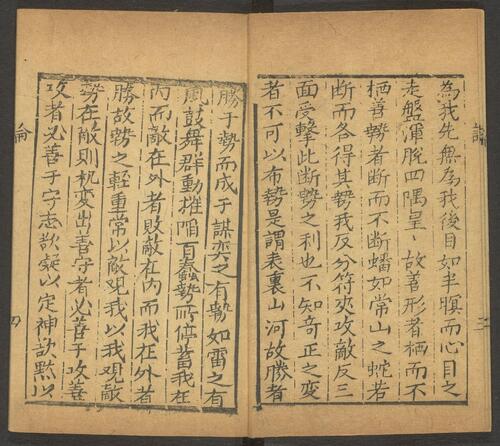 為我先無為我後目如半瞑而心目之
走盤渾脫四隅呈丶故善形者栖而不
栖善勢者斷而不斷蟠如常山之蛇若
斷而各得其勢我反分符夾攻敵反三
面受擊此斷勢之利也不知竒正之變
者不可以布勢是謂表裏山河故勝者
勝于勢而成于謀奕之有勢如雷之有
風鼓舞群動摧陷百蠡勢所停蓄我在
內而敵在外者敗敵在內而我在外者
勝故勢之輕重常以敵覌我以我覌敵
勢在敵則机變出善守者必善于攻善
攻者必善于守志欲凝以定神欲黙以
四